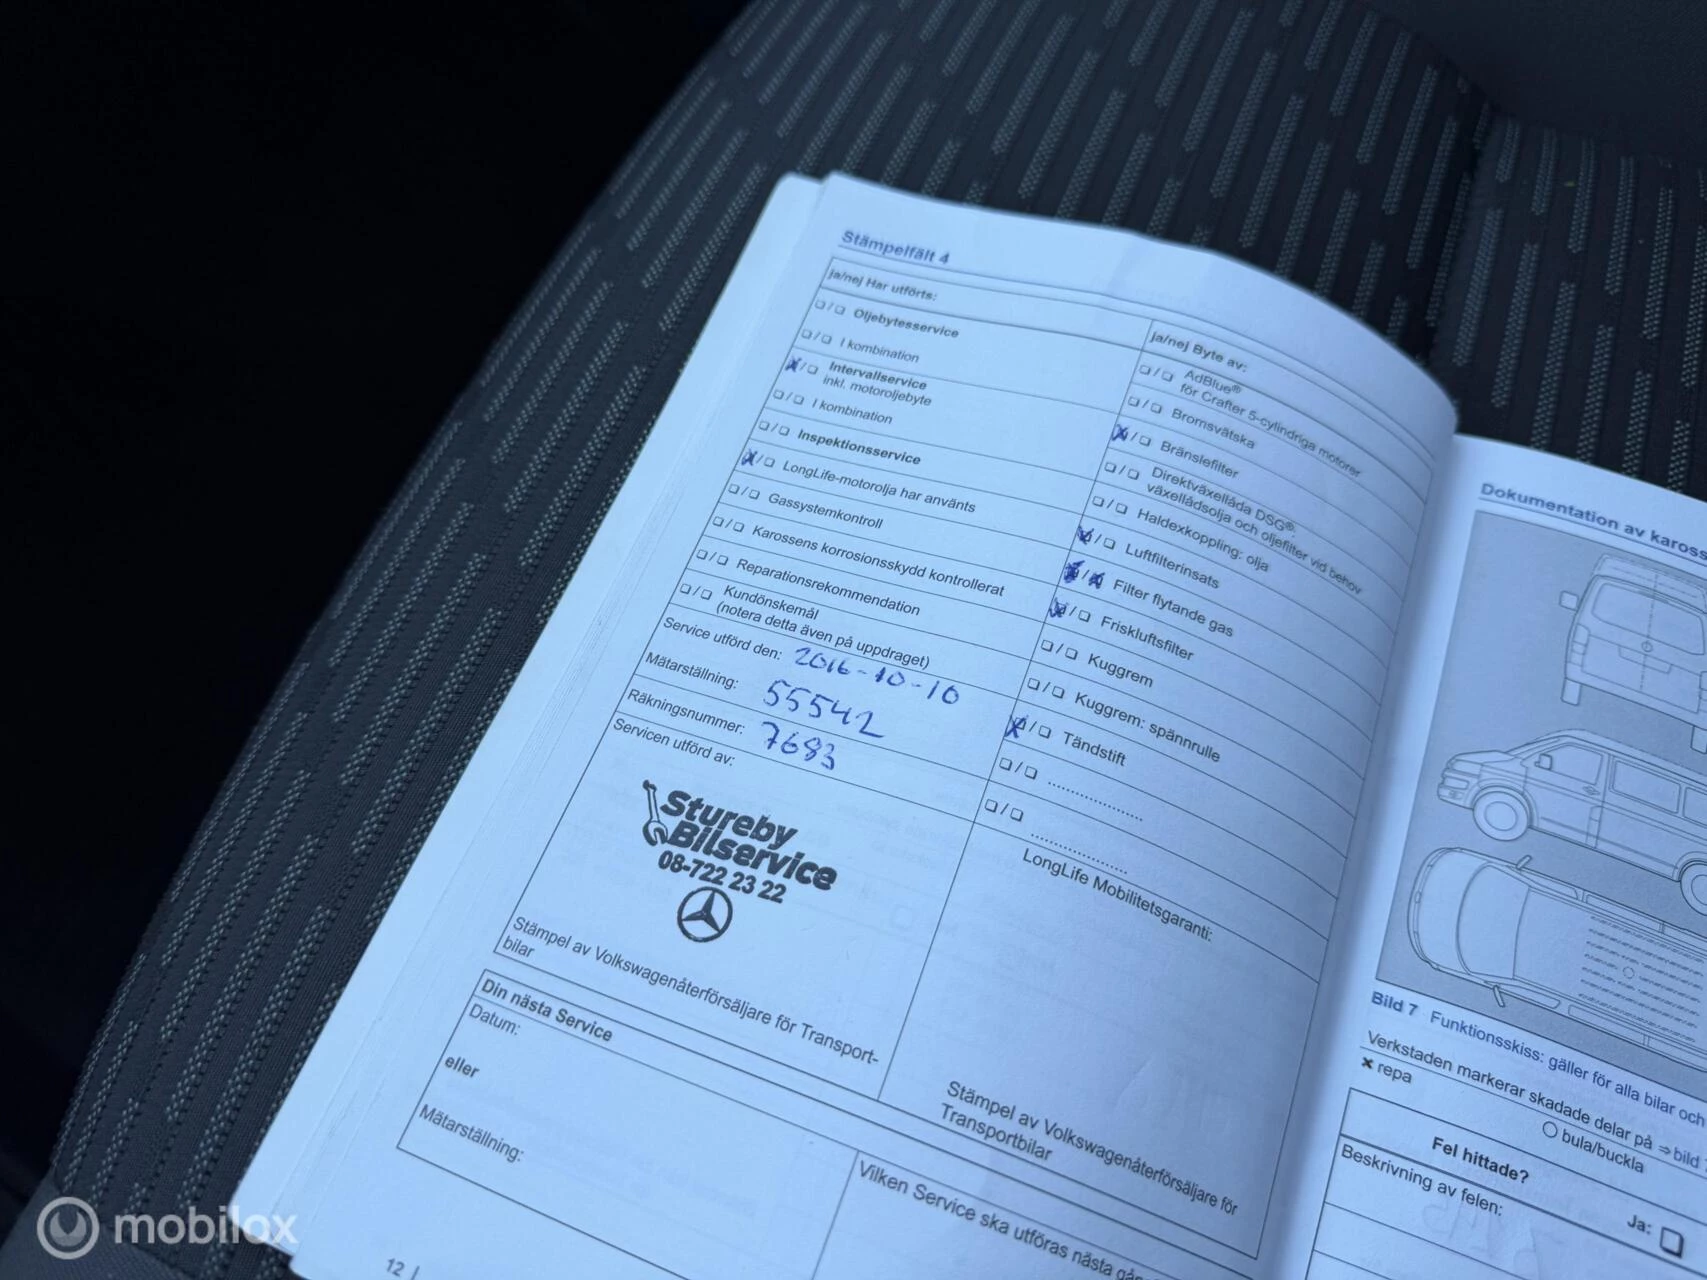 Stämpelfält 4
ja/nej Har utförts:
❏/❏ Oljebytesservice
❏/❏ I kombination
x/❏ Intervallservice
inkl. motoroljebyte
❏/❏ I kombination
❏/❏ Inspektionsservice
x/❏ LongLife-motorolja har använts
❏/❏ Gassystemkontroll
❏/❏ Karossens korrosionsskydd kontrollerat
❏/❏ Reparationsrekommendation
❏/❏ Kundönskemål
(notera detta även på uppdraget)
Service utförd den: 2016-10-10
Mätarställning: 55542
Räkningsnummer: 7683
Servicen utförd av:
Stureby
Bilservice
08-722 23 22
Stämpel av Volkswagenåterförsäljare för Transport-
bilar
ja/nej Byte av:
❏/❏ AdBlue®
för Crafter 5-cylindriga motorer
❏/❏ Bromsvätska
x/❏ Bränslefilter
❏/❏ Direktväxellåda DSG®:
växellådsolja och oljefilter vid behov
❏/❏ Haldexkoppling: olja
x/❏ Luftfilterinsats
x/x Filter flytande gas
x/❏ Friskluftsfilter
❏/❏ Kuggrem
❏/❏ Kuggrem: spännrulle
x/❏ Tändstift
❏/❏ ....................
❏/❏ ....................
LongLife Mobilitetsgaranti:
Stämpel av Volkswagenåterförsäljare för
Transportbilar
Din nästa Service
Datum:
eller
Mätarställning:
Vilken Service ska utföras nästa
12
Dokumentation av
Bild 7 Funktionsskiss: gäller för alla bilar och
Verkstaden markerar skadade delar på ⇒ bild
× repa
○ bula/buckla
Fel hittade?
Beskrivning av felen:
Ja: ❏
mobilox